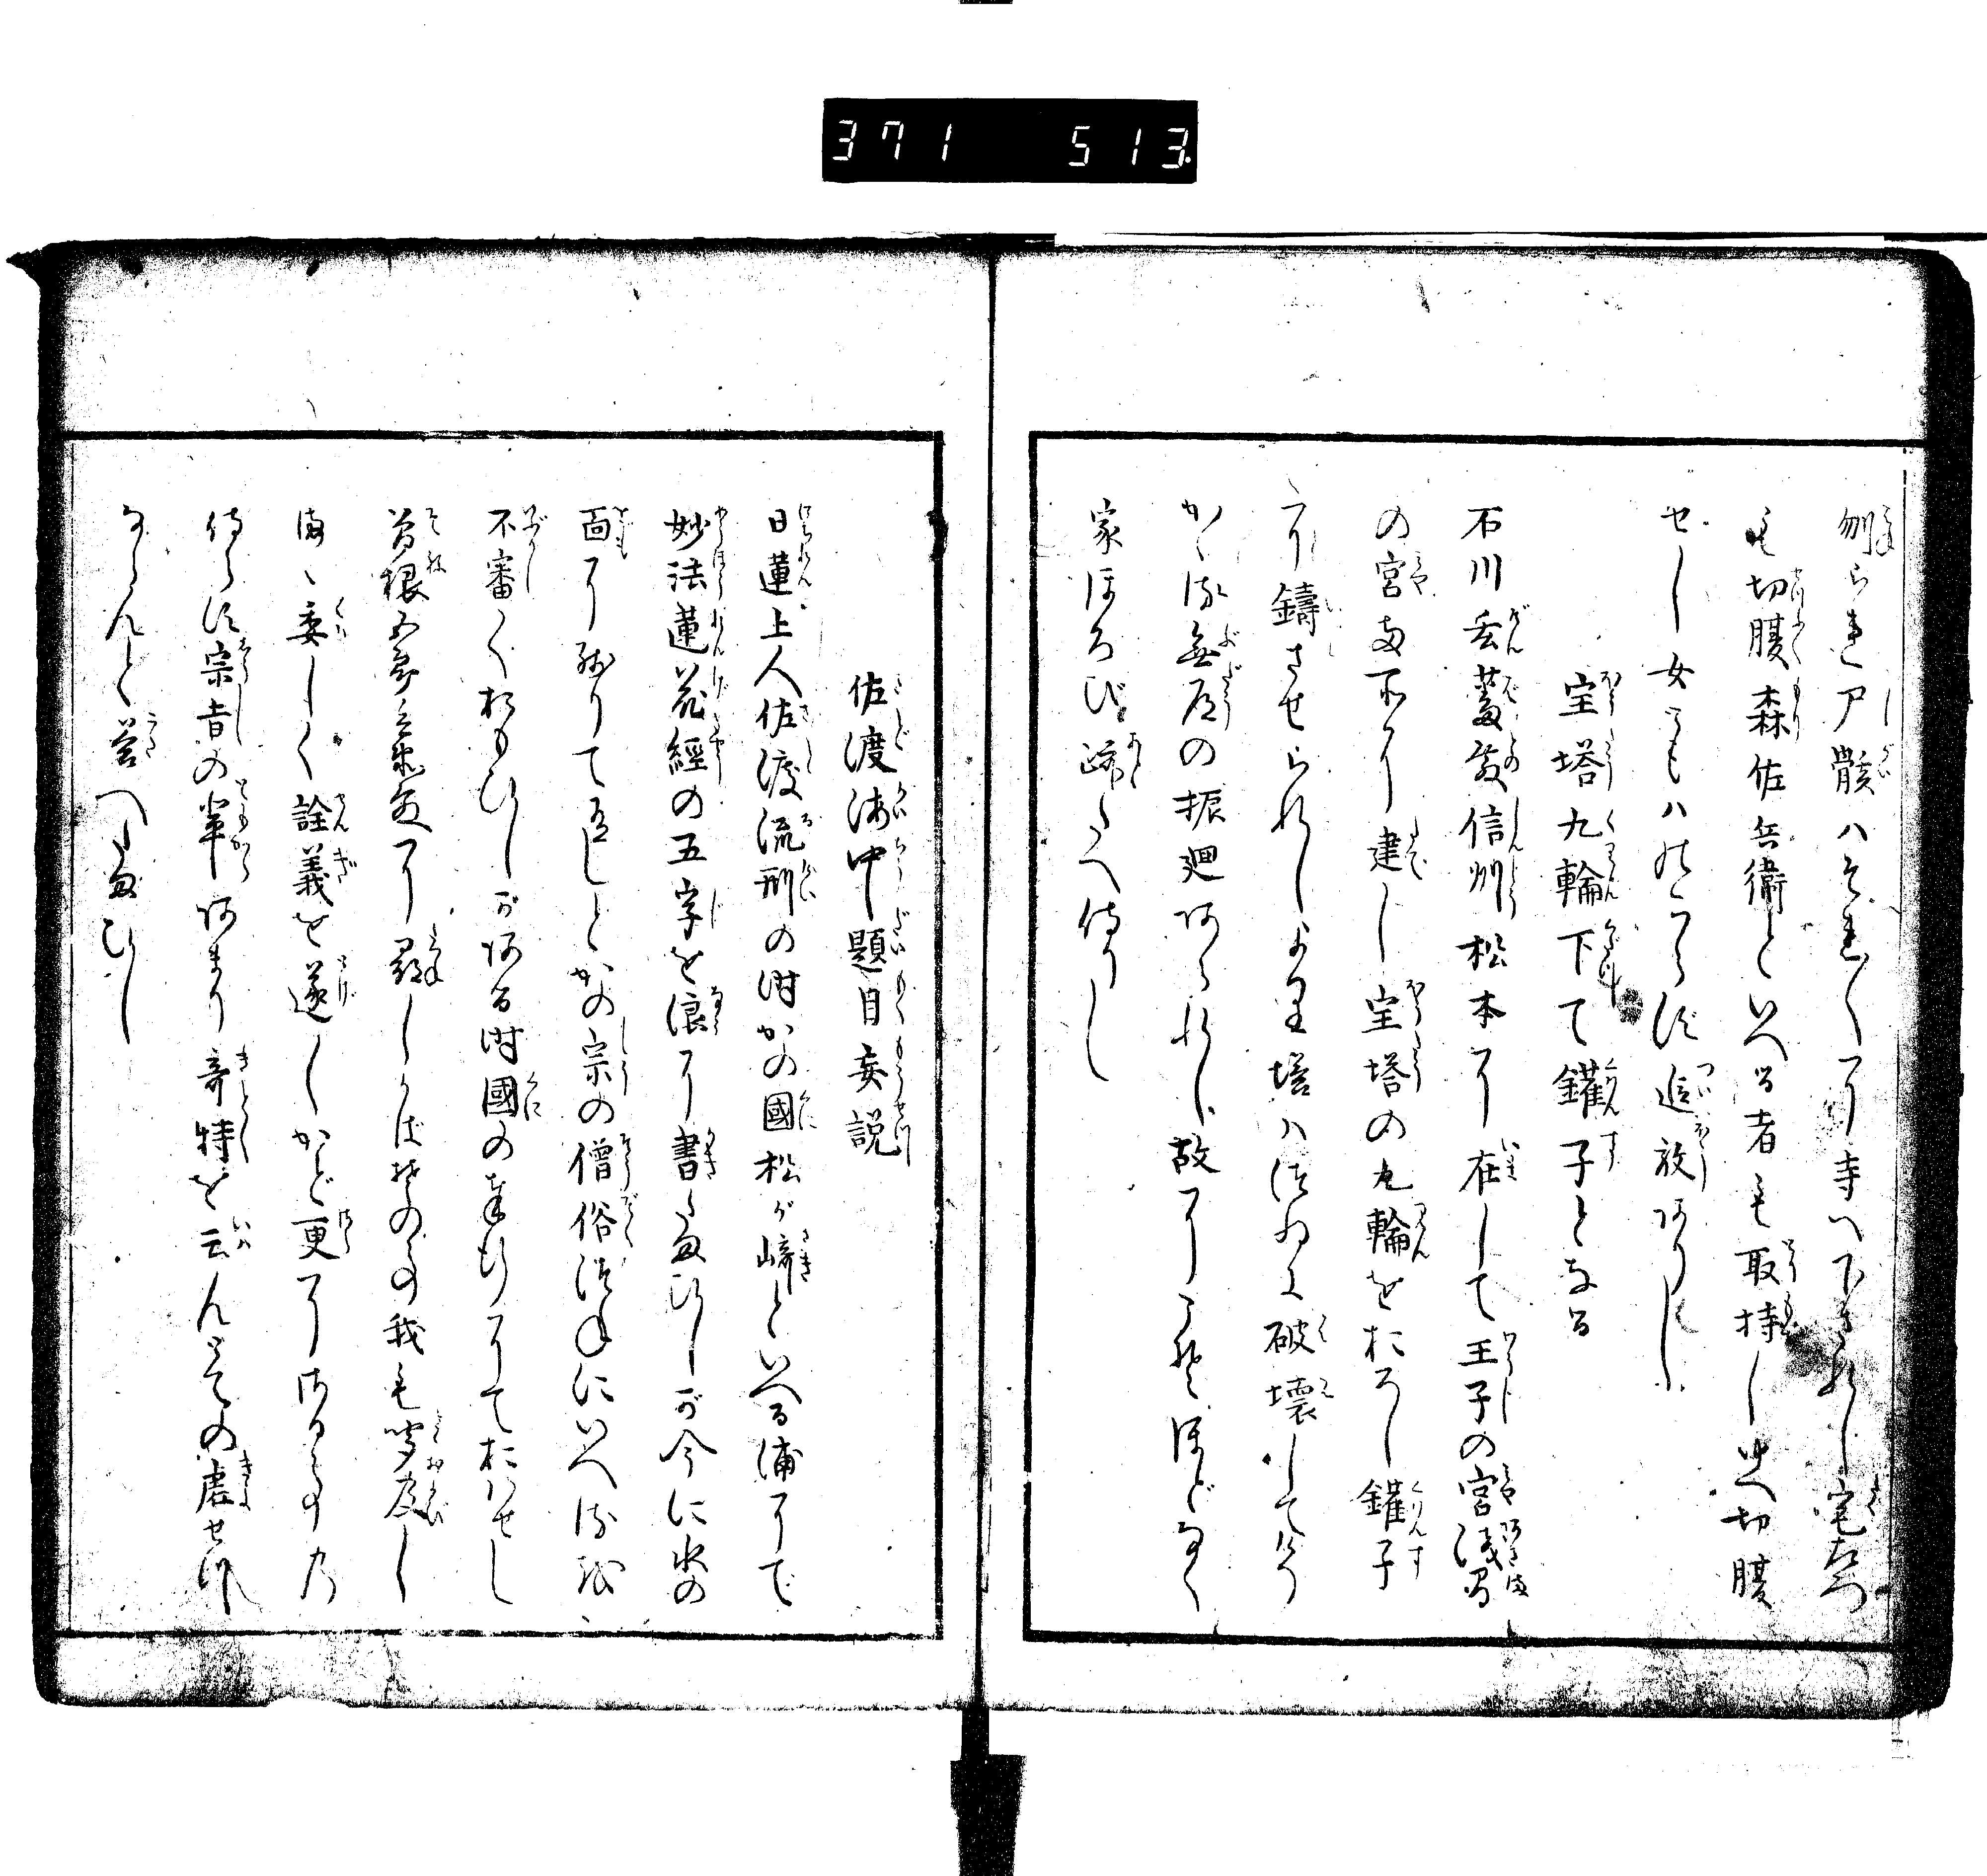 371 513
刎られ尸骸ハそれ〳〵に寺へ下されし宅左衛
も切腹森佐兵衛といへる者も取持し迚切腹
せし女どもハのこらず追放ありし
宝塔九輪下て鑵子となる
石川玄蕃殿信州松本に在して王子の宮浅間
の宮両所に建し宝塔の九輪をおろし鑵子
に鋳させられしより塔ハつゐに破壊してけり
かゝる無道の振廻ありし故にこそほどなく
家ほろび跡たへ侍りし
佐渡海中題目妄説
日蓮上人佐渡流刑の時かの國松が崎といへる浦にて
妙法蓮花經の五字を浪に書たまひしが今に水の
面に残りて有しとかの宗の僧俗つねにいへるを
不審くおもひしがある時國の奉行にておハせし
曽根五郎兵衛殿に尋しかばその事我も聞及し
まゝ委しく詮義を遂しかど更にさる事の
侍らず宗旨の輩あまり奇特を云んとての虚せ作
ならんと答へたまひし